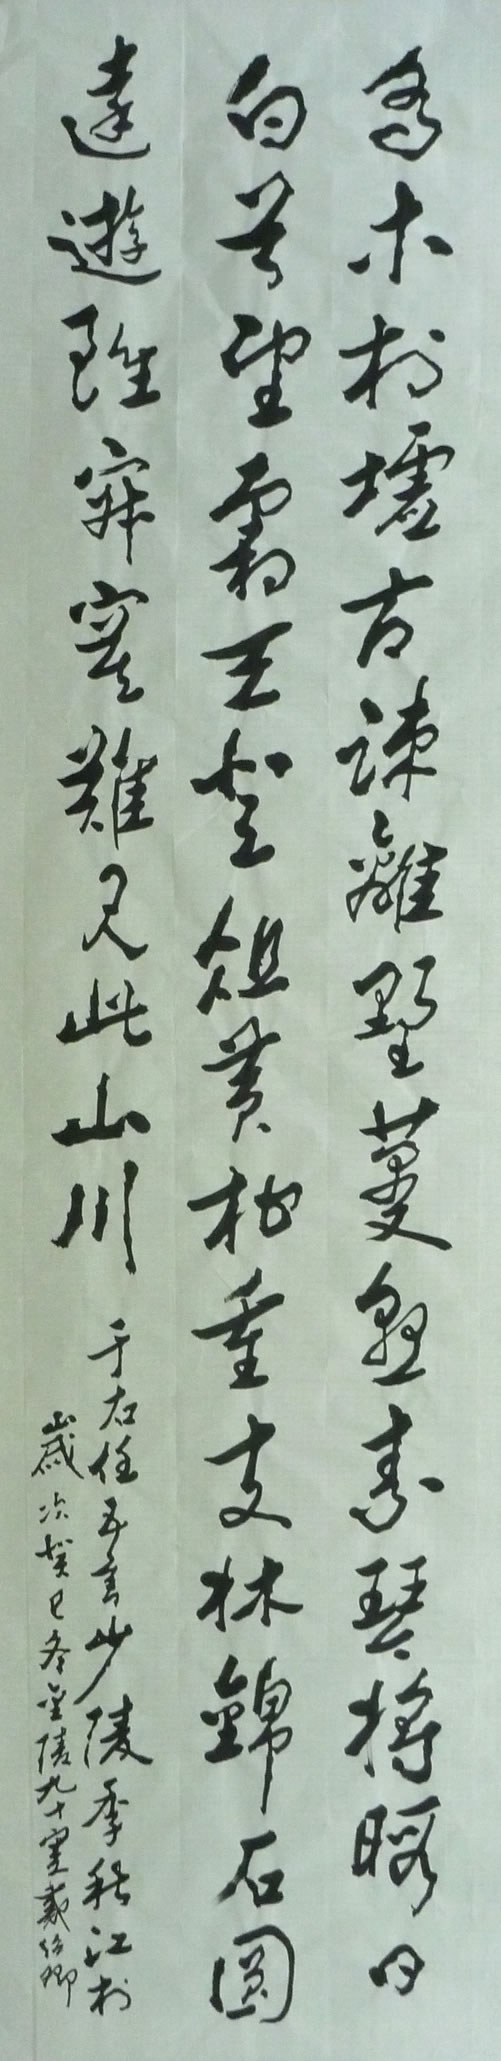 喬木村墟古疎籬墅蔓懸素琴將暇日
白首望霜天登俎黃柑重支牀錦石圓
遠遊雖寂寞難見此山川
于右任五言少陵季秋江村
歲次癸巳冬金陵九十叟戴卿